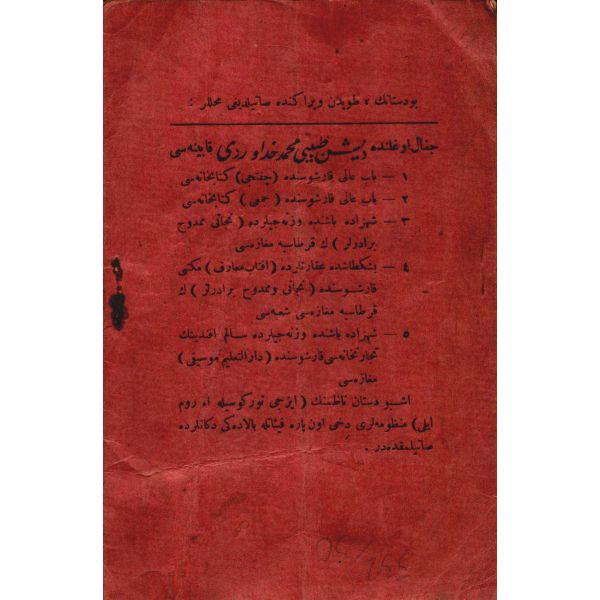 بودستانك ، طوپدن و پراكنده صاتیلدیغی محللر :
جغال اوغلنده دیشچی طبیبی محمد خداوردی قابینه‌سی
۱ — باب عالی قارشوسنده ( چفتجی ) كتابخانه‌سی
۲ — باب عالی قارشوسنده ( حمی ) كتابخانه‌سی
۳ — شهزاده باشنده وزنه‌جیلرده ( نجاتی ممدوح
برادرلر ) ك قرطاسیه مغازه‌سی
٤ — بشكطاشده عقارتلرده ( افتاب معارف ) مكتبی
قارشوسنده ( نجاتی و ممدوح برادرلر ) ك
قرطاسیه مغازه‌سی شعبه‌سی
۵ — شهزاده باشنده وزنه‌جیلرده سالم افندینك
تجارتخانه‌سی قارشوسنده ( دارالتعلیم موسیقی )
مغازه‌سی
اشبو دستان ناظمنك ( ایزجی توركوسیله اه روم
ایلی ) منظومه‌لری دخی اون پاره فیئاتله بالاده‌كی دكانلرده
صاتیلمقده‌در .